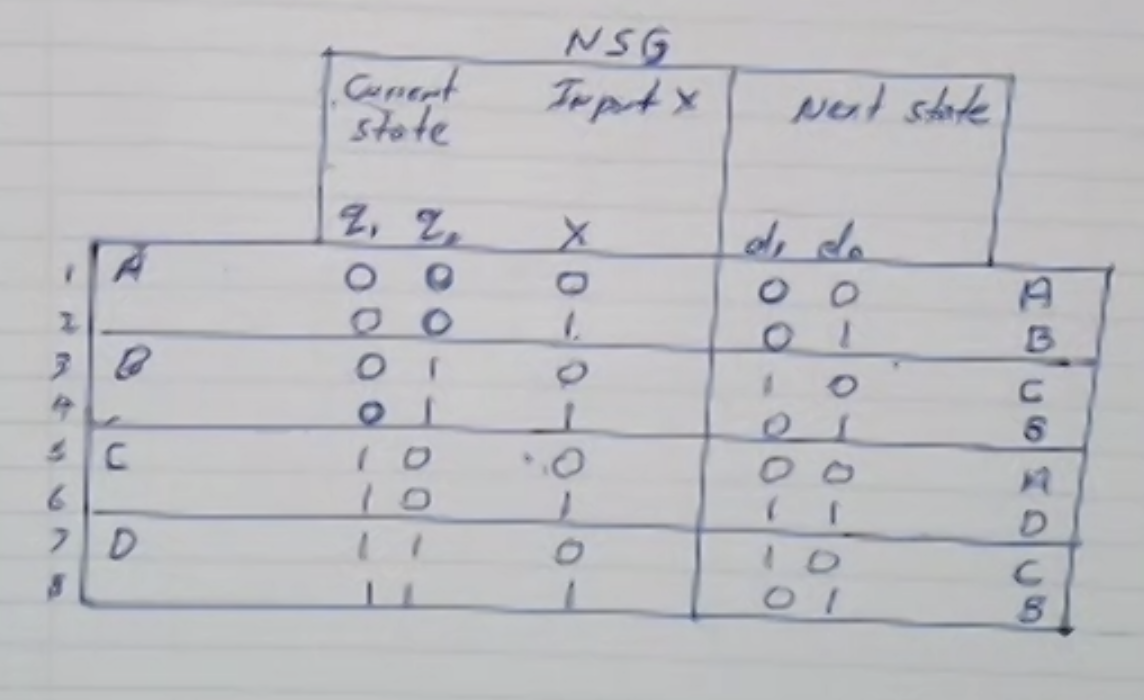 NSG
Current state Input X Next state
q₁ q₀ X d₁ d₀
1 A 0 0 0 0 0 A
2 0 0 1 0 1 B
3 B 0 1 0 1 0 C
4 0 1 1 0 1 B
5 C 1 0 0 0 0 A
6 1 0 1 1 1 D
7 D 1 1 0 1 0 C
8 1 1 1 0 1 B